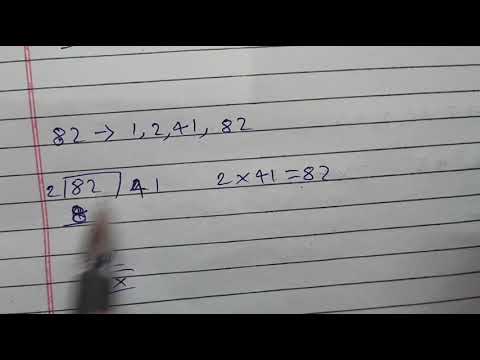 82 → 1, 2, 41, 82
2 ) 82 ( 41 2 × 41 = 82
8
x